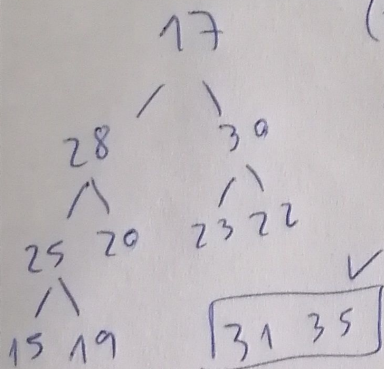 17
28 30
25 20 23 22
15 19 31 35